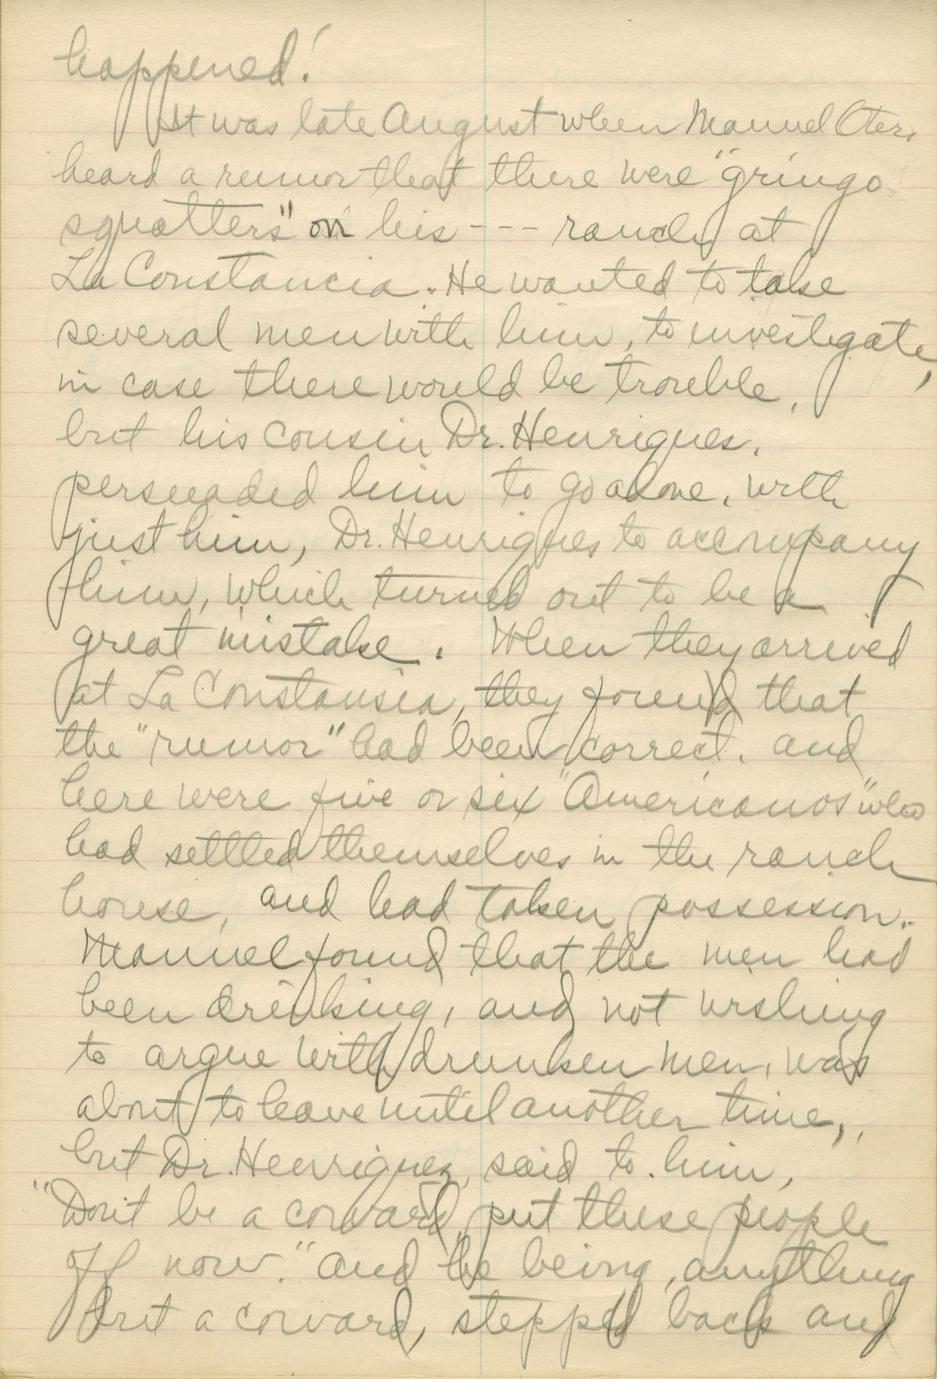 happened!
It was late August when Manuel Otero
heard a rumor that there were "gringo
squatters" on his --- ranch at
La Constancia. He wanted to take
several men with him, to investigate,
in case there would be trouble,
but his cousin Dr. Henriques,
persuaded him to go alone, with
just him, Dr. Henriques to accompany
him, which turned out to be a
great mistake. When they arrived
at La Constansia, they found that
the "rumor" had been correct. and
here were five or six "Americanos" who
had settled themselves in the ranch
house, and had taken possession.
Manuel found that the men had
been drinking, and not wishing
to argue with drunken men, was
about to leave until another time,
but Dr. Henriquez, said to him,
"Don't be a coward, put these people
off now." and he being, anything
but a coward, stepped back and